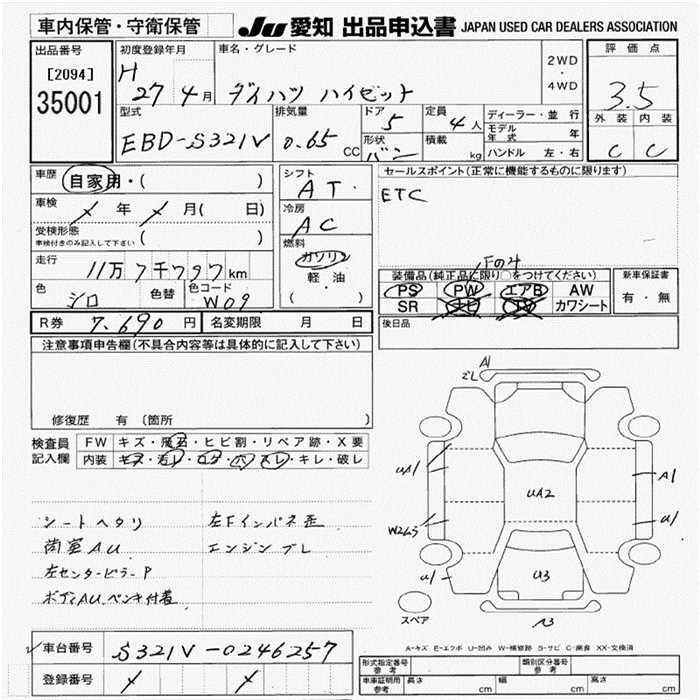 車内保管・守衛保管
JU 愛知 出品申込書 JAPAN USED CAR DEALERS ASSOCIATION
出品番号
[2094]
35001
初度登録年月
H 27 4月
車名・グレード
ダイハツ ハイゼット
2WD・4WD
評価点
3.5
外装 内装
C C
型式
EBD-S321V
排気量
0.65 CC
ドア
5
形状
バン
定員
4人
積載
kg
ディーラー・並行
モデル年式 年
ハンドル 左・右
車歴
自家用・( )
車検
年 月( 日)
受検形態
車検付きのみ記入して下さい ( )
走行
11万7千797km
色
シロ
色替
色コード
W09
シフト
AT・
冷房
AC
燃料
ガソリン
軽・油
( )
セールスポイント(正常に機能するものに限ります)
ETC
Fのみ
装備品(純正品に限り○をつけてください)
PS PW エアB AW
SR ナビ TV カワシート
新車保証書
有・無
後日品
R券 7,690円 名変期限 月 日
注意事項申告欄(不具合内容等は具体的に記入して下さい)
修復歴 有 〔箇所
検査員記入欄
FW キズ・飛石・ヒビ割・リペア跡・X要
内装 キズ・汚レ・コゲ・穴・スレ・キレ・破レ
シートヘタリ 左Fインパネ歪
荷室AU エンジンブレ
左センターピラーP
ボディAU ペンキ付着
A1
UA1
UA2
A1
W2ムラ
U1
U1
U3
スペア
A-キズ E-エクボ U-凹み W-補修跡 S-サビ C-腐食 XX-交換済
車台番号 S321V-0246257
登録番号
形式指定番号 参考
類別区分番号 参考
車検証印刷 参考 長さ cm 幅 cm 高さ cm